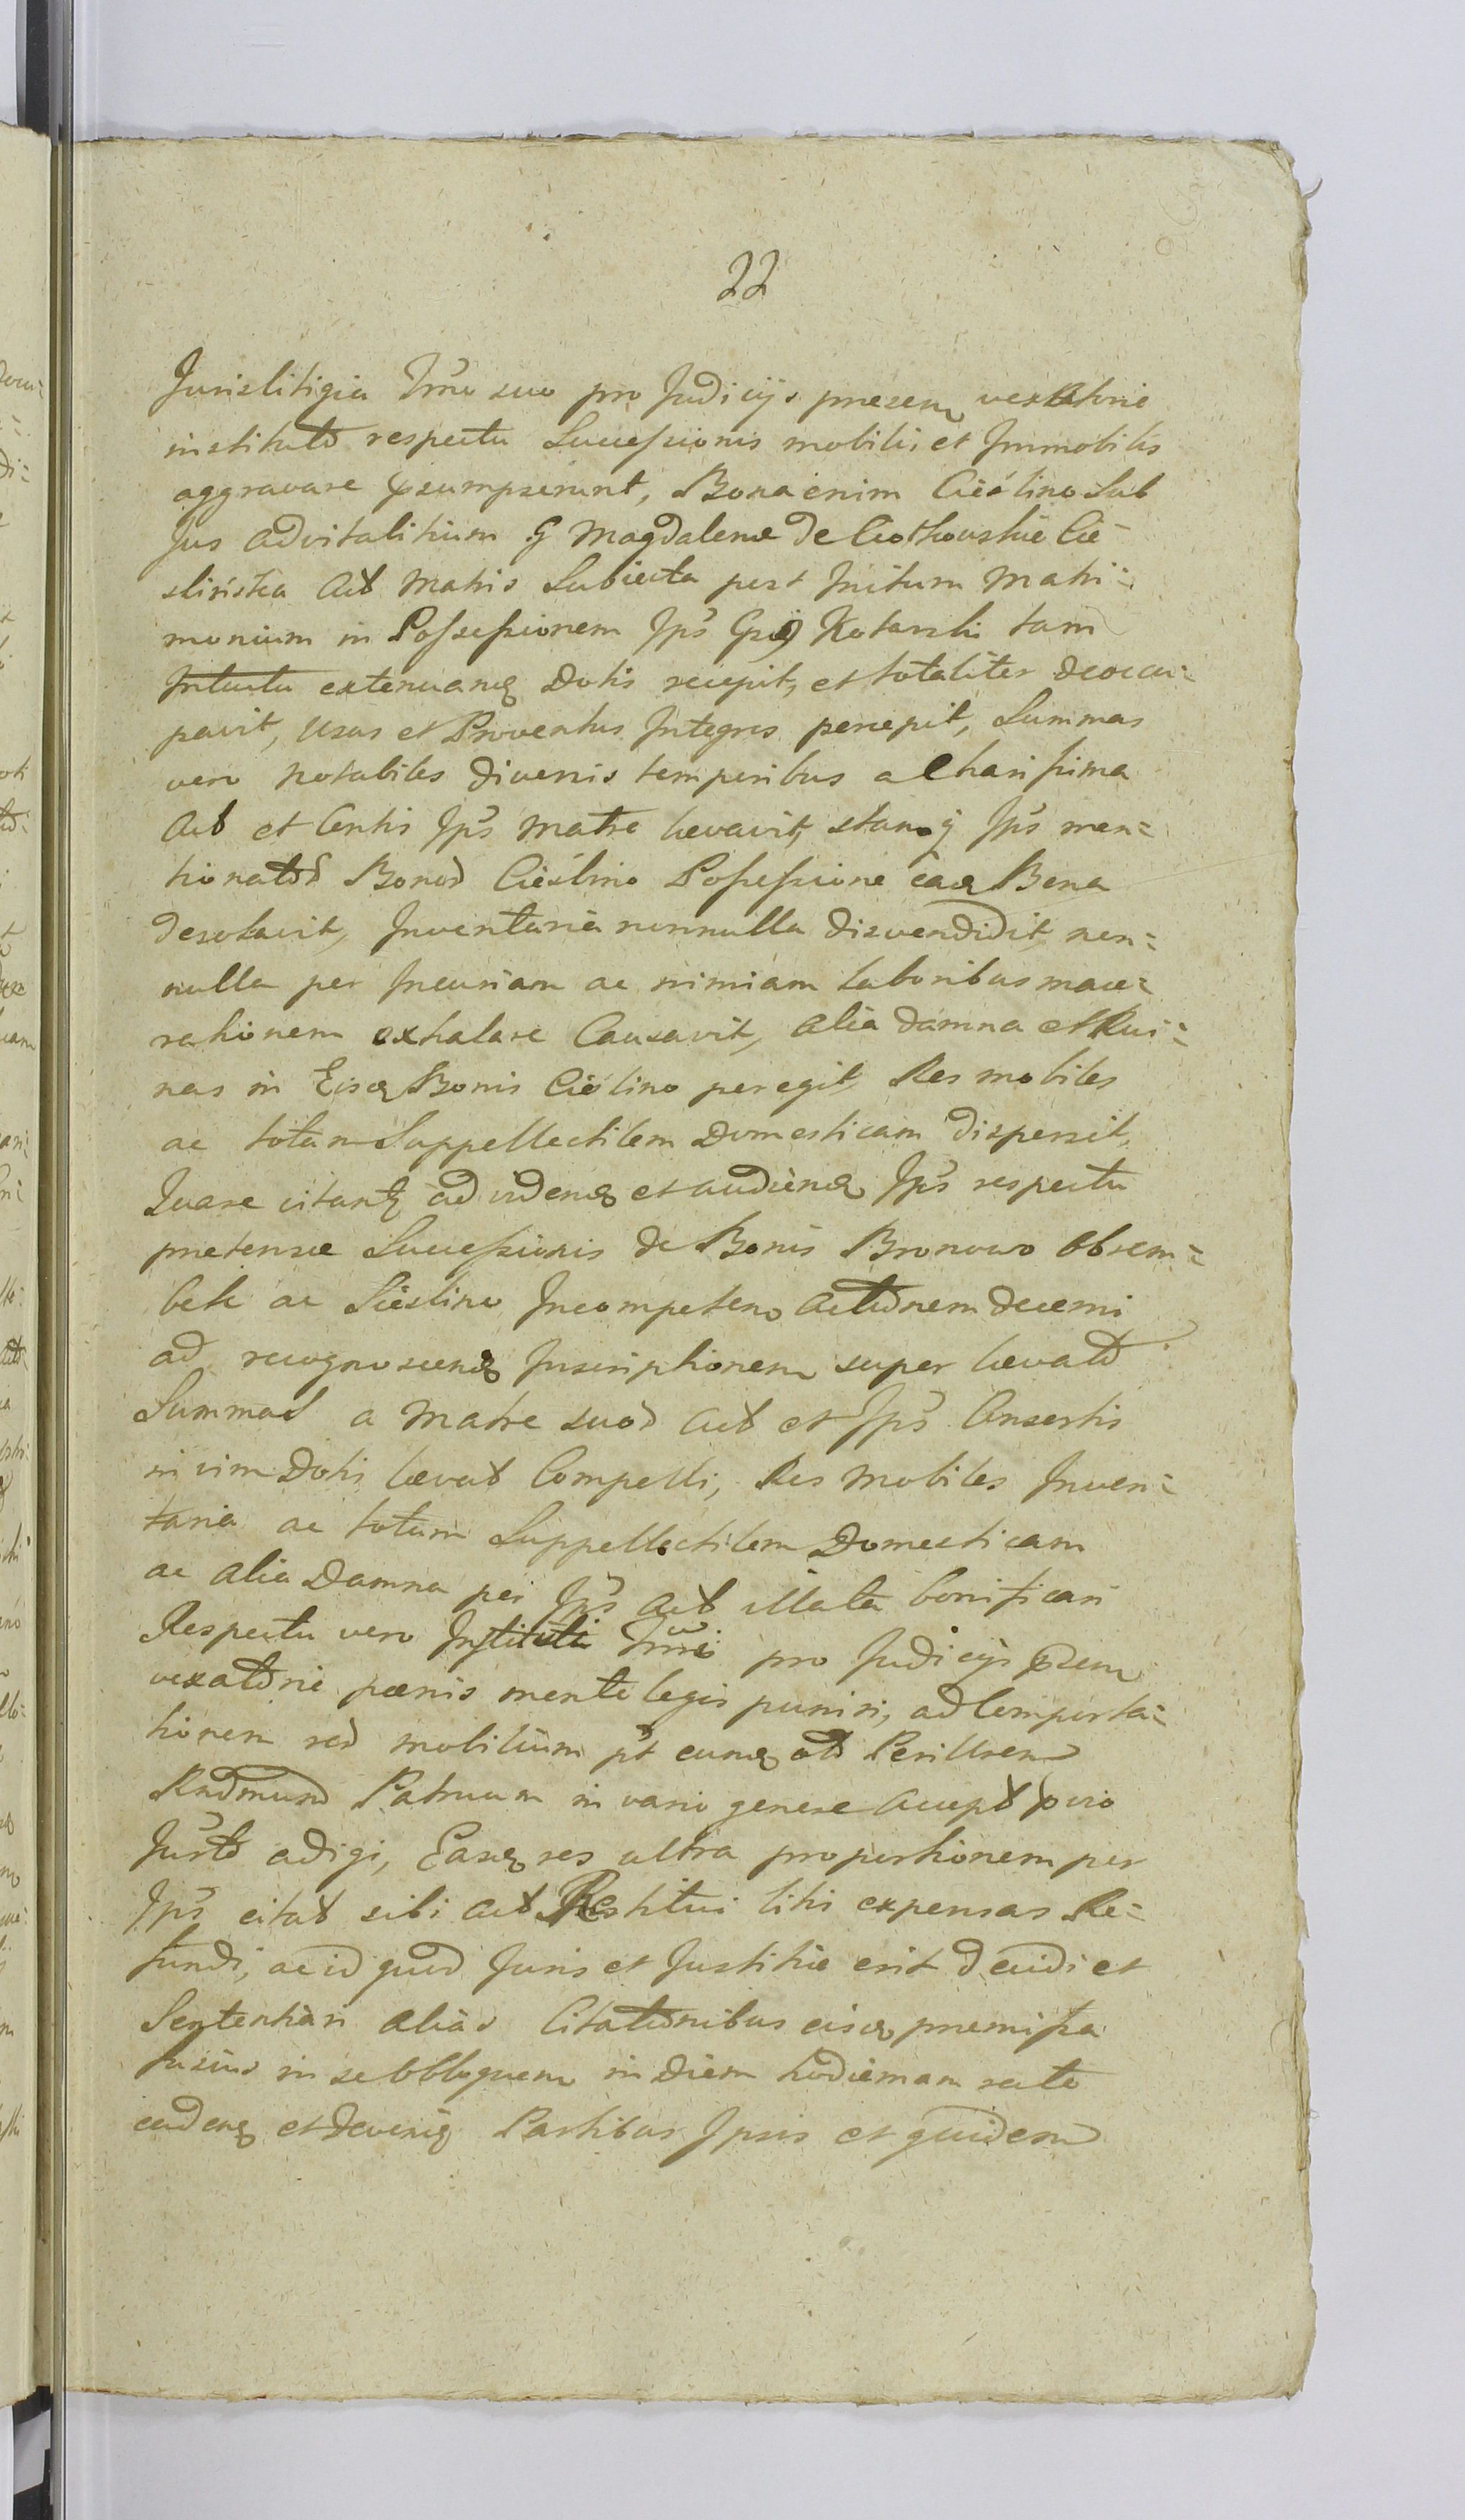 22
Jurislitigia Trno suo pro Judicijs presen vexatorie
institutô respectu Successionis mobilis et Immobilis
aggravare psumpserunt, Bona enim Cieślino Sub
Jus advitalitium G Magdalenæ de Ciothowskie Cie=
slińska Act Matris Subiecta post Initum Matri=
monium in Possessionem Jps Gsus Kotarski tam
Intuitu extenuanq Dotis recepit, et totaliter deoccu=
pavit, Usus et Proventus Integros percepit, Summas
vero notabiles diversis temporibus a Charissima
Act et Contis Jps Matre levavit, stanq Jps men=
tionatôd Bonod Cieślino Possessione eaq Bona
desolavit, Inventaria nonnulla disvendidit, non=
nulla per Incuriam ac nimiam laboribus mace=
rationem exhalare Causavit, alia damna et Rui=
nas in Eisq Bonis Cieślino peregit, Res mobiles
ac totam Suppellectilem Domesticam dispersit,
Quare citantq ad videnq et audienq Jps respectu
pretensæ Successionis de Bonis Bronowo Obrem=
bek ac Cieślino Incompeten actionem decerni
ad recognoscenq Inscriptionem super levatô
Summad a Matre suad Act et Jps Consortis
in vim Dotis levat Compelli, Res Mobiles Inven=
taria ac totam Suppellectilem Domesticam
ac alia Damna per Jps Act illata bonificari
Respectu vero Instituti Trni pro Judicijs psen
vexatôrie pænis mente legis puniri, ad Comporta=
tionem red mobilium pt eunq ad Perillrem
Rndmum Patruum in vario genere accept pvio
Jurtô adigi, Easq res ultra proportionem per
Jps citat sibi act Restitui litis expensas Re=
fundi, ac id quod Juris et Justitiæ erit decidi et
Sententiari alias Citatiônibus eisq premissa
fusius in se obloquen in diem hodiernam rite
cadenq et devenq Partibus Ipsis et quidem